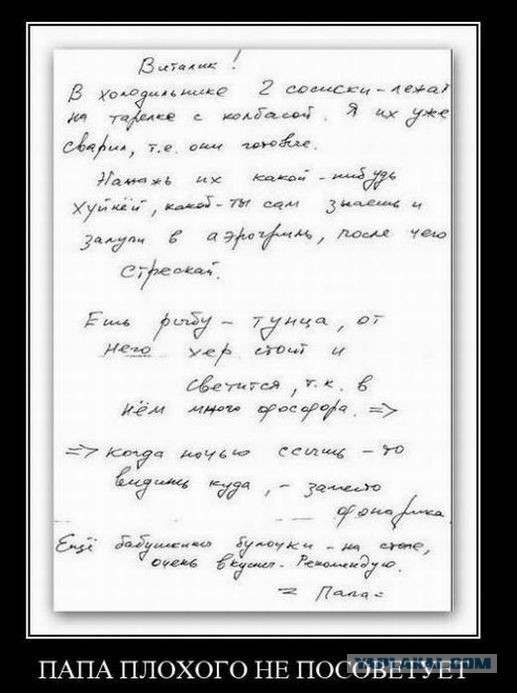 Виталик!
В холодильнике 2 сосиски - лежат
на тарелке с колбасой. Я их уже
сварил, т.е. они готовые.
Намажь их какой-нибудь
хуйнёй, какой - ты сам знаешь и
залупи в аэрогриль, после чего
стрескай.
Ешь рыбу - тунца, от
него хер стоит и
светится, т.к. в
нём много фосфора. =>
=> когда ночью ссышь - то
видишь куда, - заместо
фонарика.
Ещё бабушкины булочки - на столе,
очень вкусно. Рекомендую.
= Папа =
ПАПА ПЛОХОГО НЕ ПОСОВЕТУЕТ
YAPLAKAL.COM